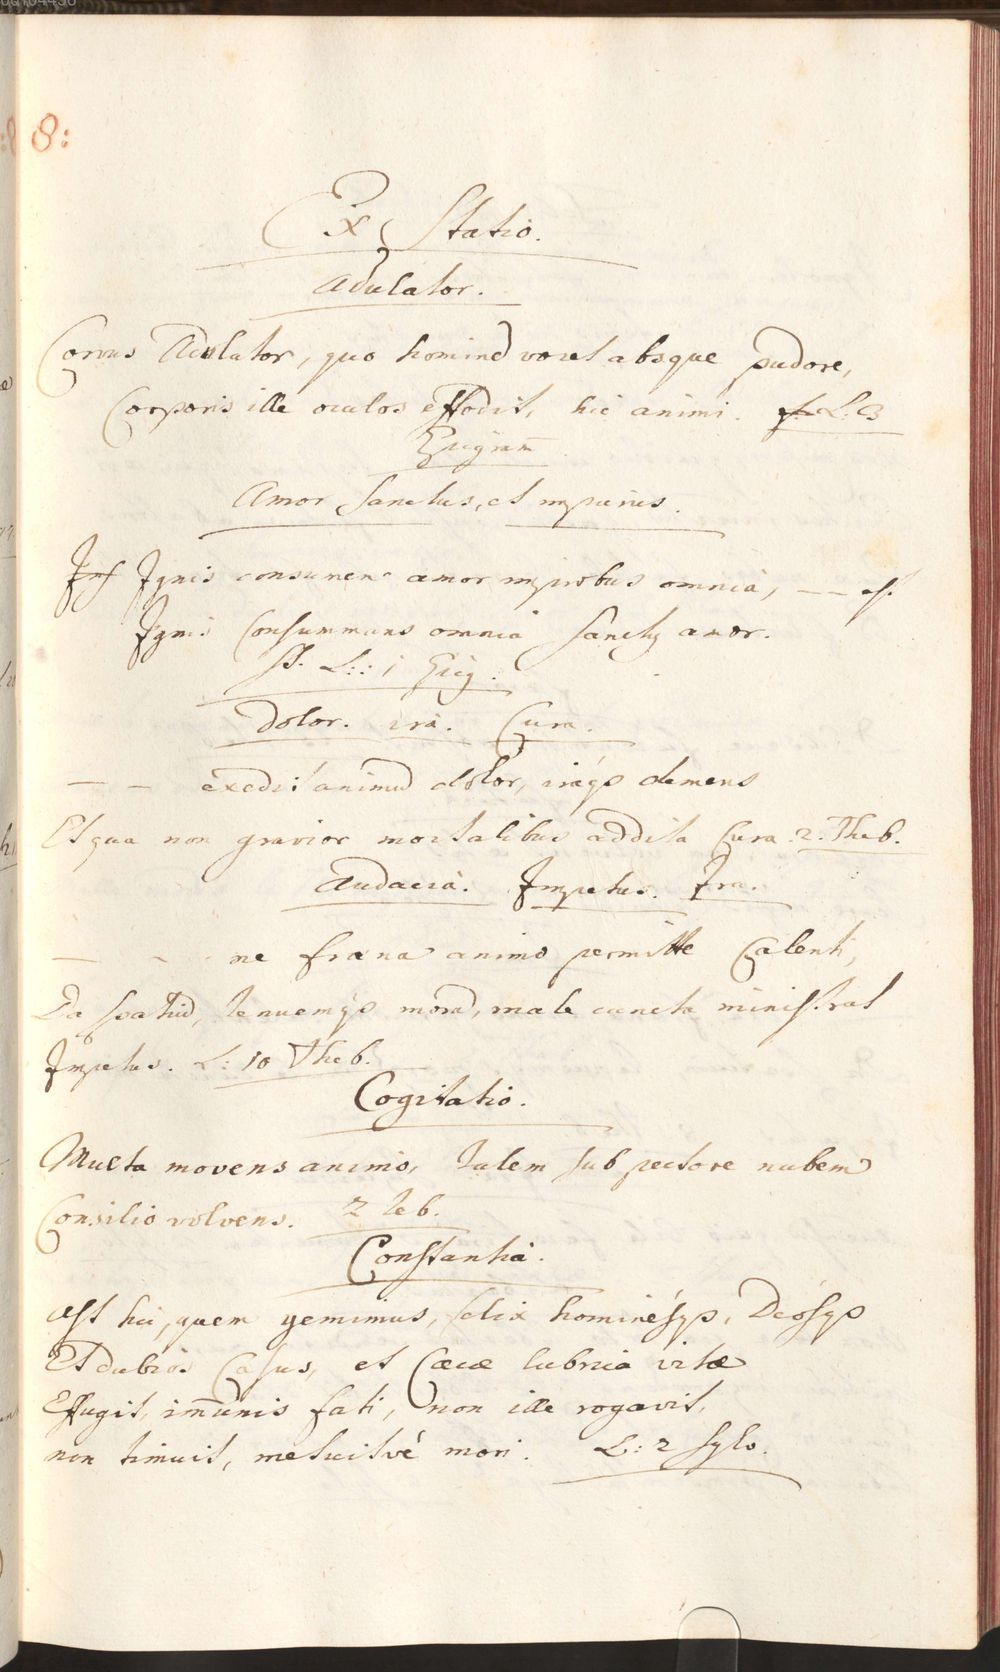 8:
Ex Statio.
Adulator.
Corvus Adulator, quo hominem voret absque pudore,
Corporis ille oculos effodit, hic animi. L: 3
Epigram̄
Amor Sanctus, et impurus.
Ignis consumens amor improbus omnia, — — est
Ignis Consummans omnia Sanctus amor.
L:: 1 Epig.
Dolor. ira. Cura.
— — exedit animum dolor, iráque demens
Et qua non gravior mortalibus addita Cura 2. Theb.
Audacia. Impetus. Ira.
— - ne fræna animo permitte Calenti,
Da spatium, tenuemque moram, male cuncta ministrat
Impetus. L: 10 Theb.
Cogitatio.
Multa movens animo, talem sub pectore nubem
Consilio volvens. 2 teb.
Constantia.
Ast hic, quem gemimus, felix hominésque, Deósque
Et dubiós Casus, et Cæcæ lubrica vitæ
Effugit, im̄unis fati, non ille rogavit,
non timuit, metuitvé mori. L: 2 Sylv.